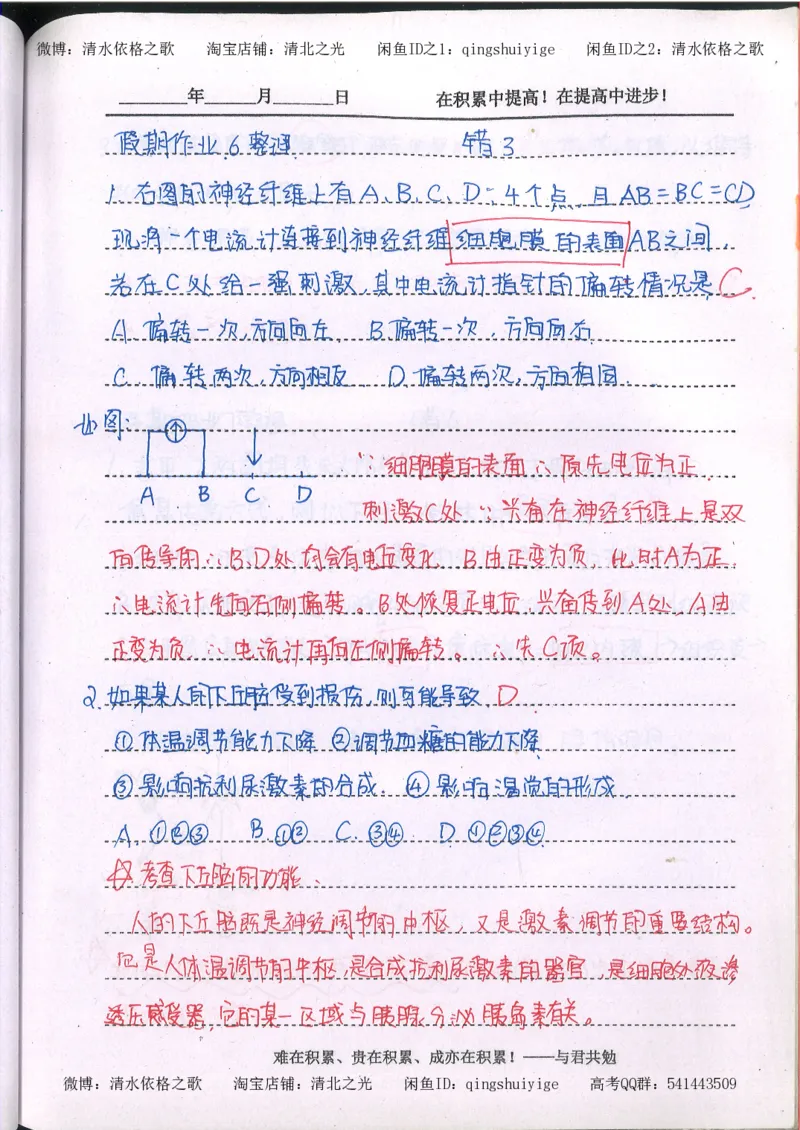 微博：清水依格之歌 淘宝店铺：清北之光 闲鱼ID之1：qingshuiyige 闲鱼ID之2：清水依格之歌
____年____月____日 在积累中提高！在提高中进步！
假期作业6整理 错3
1. 右图的神经纤维上有A、B、C、D 4个点，且AB=BC=CD
现将一个电流计连接到神经纤维细胞膜的表面AB之间，
若在C处给一强刺激，其中电流计指针的偏转情况是 C
A. 偏转一次，方向向左 B. 偏转一次，方向向右
C. 偏转两次，方向相反 D. 偏转两次，方向相同
图：
A B C D
∵细胞膜的表面∴原先电位为正.
刺激C处∵兴奋在神经纤维上是双
向传导的∴B、D处均会有电位变化，B由正变为负，此时A为正，
∴电流计先向右侧偏转。B处恢复正电位，兴奋传到A处，A由
正变为负，∴电流计再向左侧偏转。∴失C项。
2. 如果某人的下丘脑受到损伤，则可能导致 D
①体温调节能力下降 ②调节血糖的能力下降
③影响抗利尿激素的合成 ④影响温觉的形成
A. ①②③ B. ①② C. ③④ D. ①②③④
考查下丘脑的功能、
人的下丘脑既是神经调节的中枢，又是激素调节的重要结构。
它是人体温调节的中枢，是合成抗利尿激素的器官，是细胞外液渗
透压感受器，它的某一区域与胰腺分泌胰岛素有关。
难在积累、贵在积累、成亦在积累！——与君共勉
微博：清水依格之歌 淘宝店铺：清北之光 闲鱼ID：qingshuiyige 高考QQ群：541443509